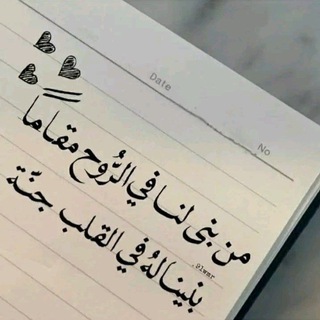 Date
No
من بنى لنا في الرُّوح مقاماً
بنينا لهُ في القلب جنّة